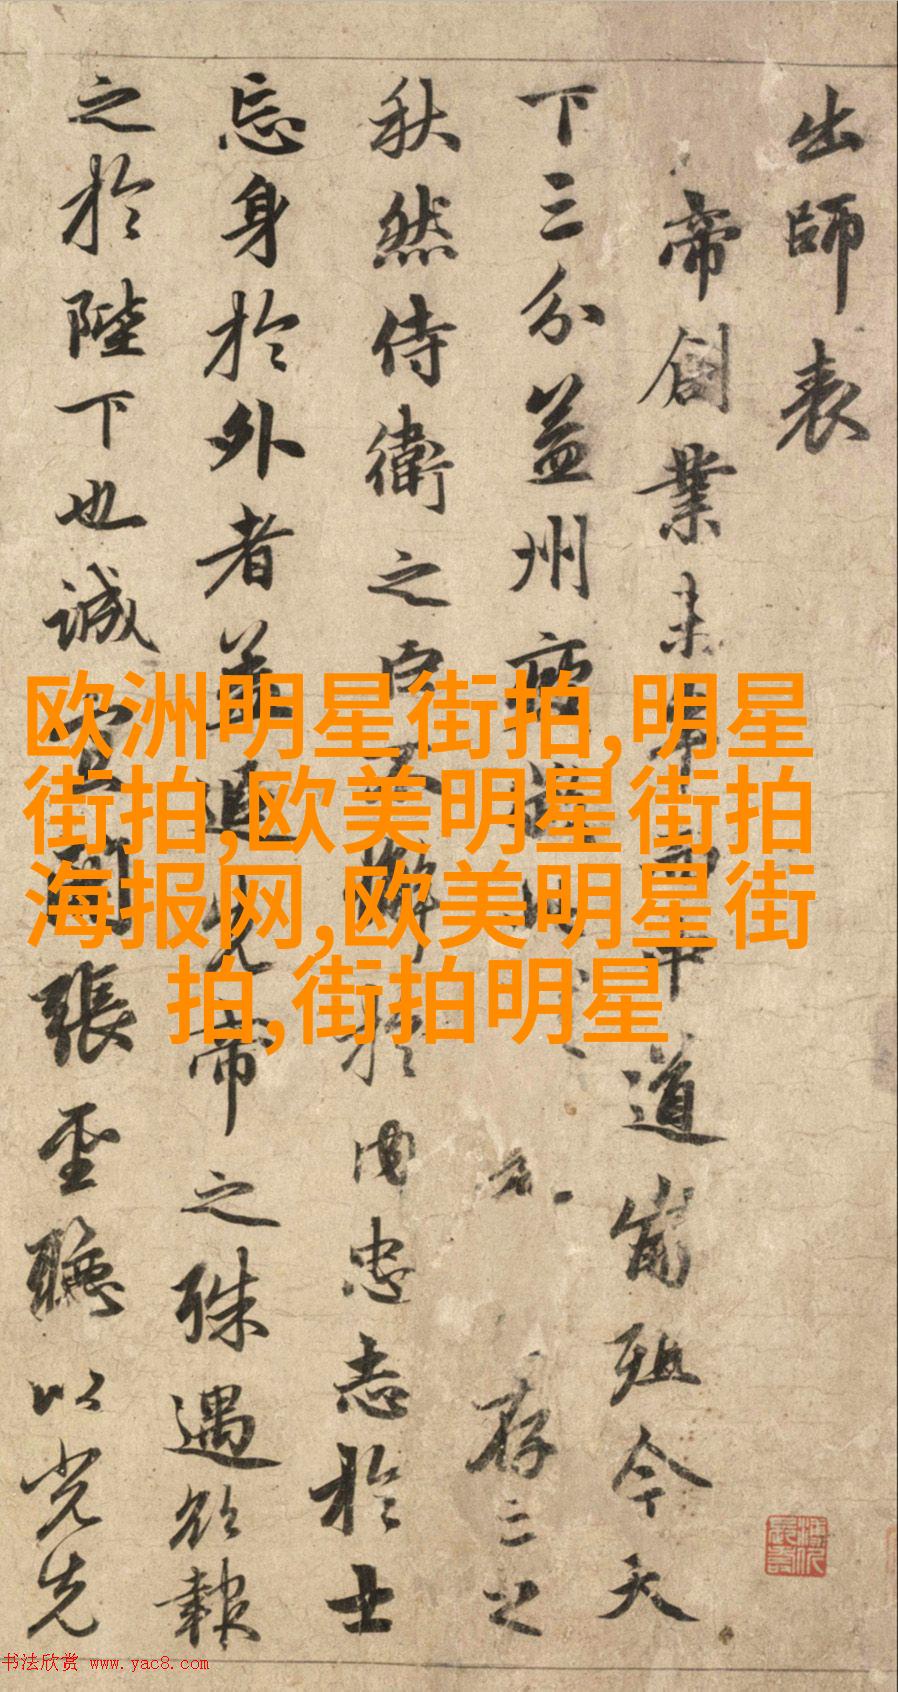 出師表
帝創業未半而中道崩殂今天
下三分益州疲存亡之
秋然侍衛之臣不懈於内忠志於士
忘身於外者盖追先帝之殊遇欲報
之於陛下也誠宜開張聖聽以光先
欧洲明星街拍,明星
街拍,欧美明星街拍
海报网,欧美明星街
拍,街拍明星
书法欣赏 www.yac8.com